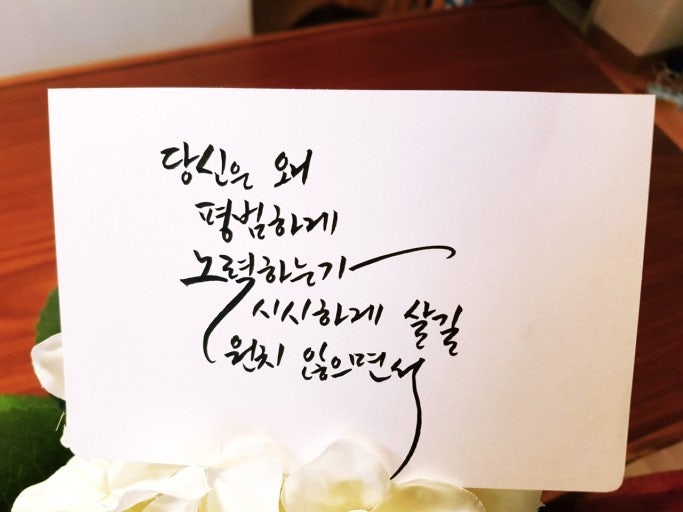 당신은 왜
평범하게
노력하는가
시시하게 살길
원치 않으면서